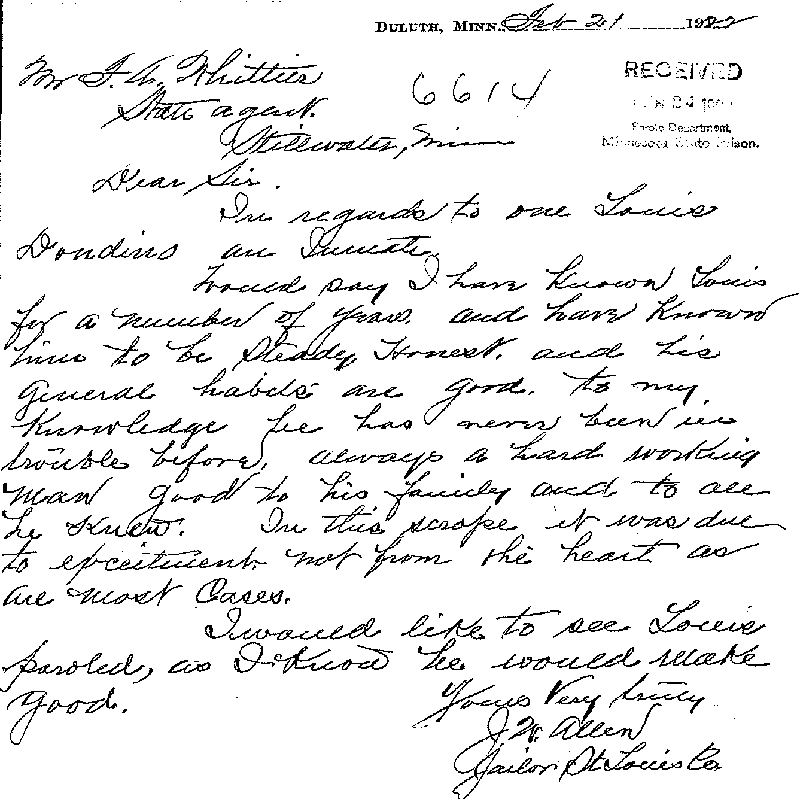 DULUTH, MINN. Feb 21 1922
Mr F. A. Whittier
State agent.
6614
RECEIVED
24
Parole Department,
Minnesota State Prison.
Stillwater, Minn
Dear Sir.
In regards to one Louis
Dondino an Inmate
Would say I have Known Louis
for a number of years. and have Known
him to be Steady, Honest. and his
general habits are good. to my
Knowledge he has never been in
trouble before, always a hard working
man good to his family and to all
he Knew. In this scrape it was due
to excitement not from the heart as
are most Cases.
I would like to see Louis
paroled, as I Know he would make
good.
Yours Very truly
J W. Allen
Jailor St Louis Co